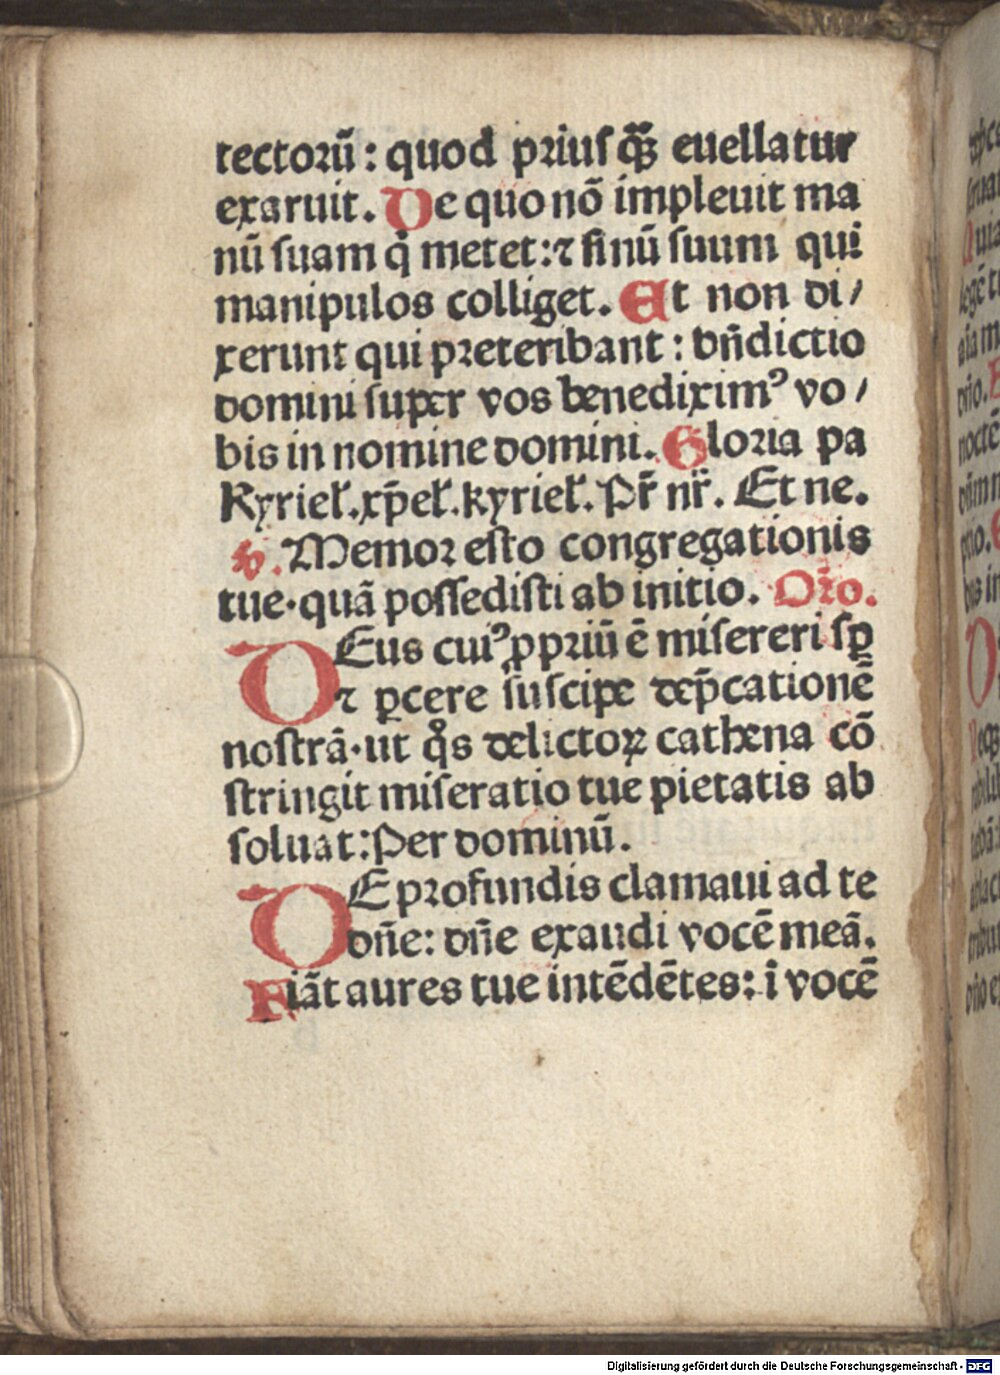 tectorū : quod priusq̄ꝫ euellatur
exaruit. De quo nō impleuit ma
nū suam q̇ metet: ⁊ sinū suum qui
manipulos colliget. Et non di/
xerunt qui preteribant : bn̄dictio
domini super vos benediximꝰ vo/
bis in nomine domini. Gloria pa
Kyriel̕. xp̄el̕. kyriel̕. Pr̄ nr̄. Et ne.
℣. Memor esto congregationis
tue· quā possedisti ab initio. Oro.
DEus cuiꝰ ꝓpriū ē misereri sꝑ
⁊ ꝑcere suscipe dep̄cationē
nostrā· ut q̊s delictoꝝ cathena cō
stringit miseratio tue pietatis ab
soluat: Per dominū.
DE profundis clamaui ad te
dn̄e: dn̄e exaudi vocē meā.
Fiāt aures tue intēdētes: ī vocē
Digitalisierung gefördert durch die Deutsche Forschungsgemeinschaft - DFG